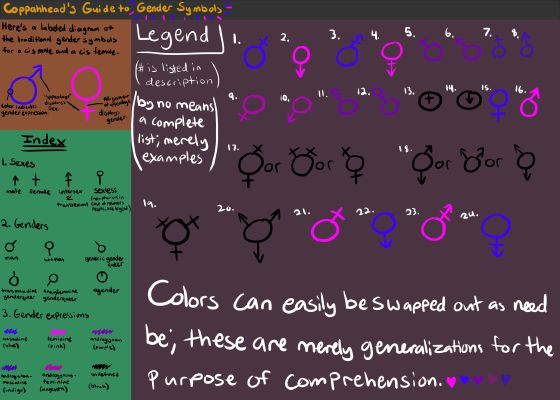 Coppahhead's Guide to Gender Symbols
Here's a labeled diagram of
the traditional gender symbols
for a cis male and a cis female.
Color indicates
gender expression.
displays
sex.
displays
gender.
Index
1. Sexes
male
female
intersex
sexless
2. Genders
man
woman
generic gender-
queer
transmasculine
genderqueer
transfeminine
genderqueer
agender
3. Gender expressions
masculine
(blue)
feminine
(pink)
androgynous
(purple)
androgynous-
masculine
(indigo)
androgynous-
feminine
(magenta)
undefined
(black)
Legend
(# is listed in
description)
(by no means
a complete
list; merely
examples)
1. 2. 3. 4. 5. 6. 7. 8.
9. 10. 11. 12. 13. 14. 15. 16.
17. or or 18. or or
19. 20. 21. 22. 23. 24.
Colors can easily be swapped out as need
be; these are merely generalizations for the
purpose of comprehension.